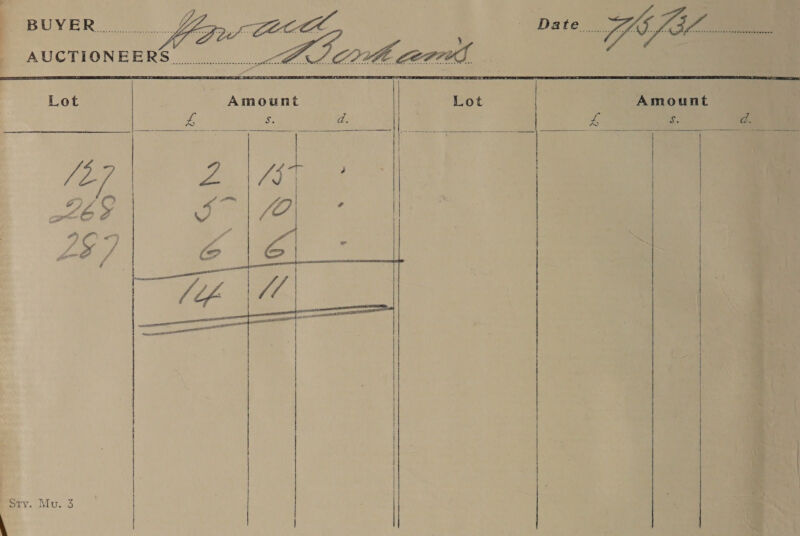 BUYER Howard Date 7/5/31
AUCTIONEERS Bonham's
Lot Amount Lot Amount
£ s. d. £ s. d.
127 2 15 "
268 5 10 "
287 6 6 "
14 11
Sty. Mu. 3